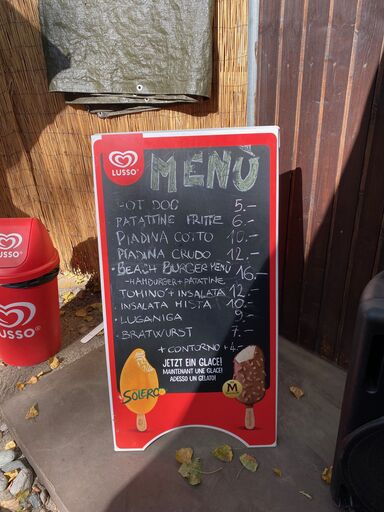 LUSSO
MENÙ
HOT DOG 5.-
PATATTINE FRITTE 6.-
PIADINA COTTO 10.-
PIADINA CRUDO 12.-
• BEACH BURGER MENÙ 16.-
-HAMBURGER + PATATINE
TOMINO + INSALATA 12.-
• INSALATA MISTA 10.-
• LUGANIGA 9.-
• BRATWURST 7.-
+ CONTORNO + 4.-
JETZT EIN GLACE!
MAINTENANT UNE GLACE!
ADESSO UN GELATO!
SOLERO
M
LUSSO
LUSSO